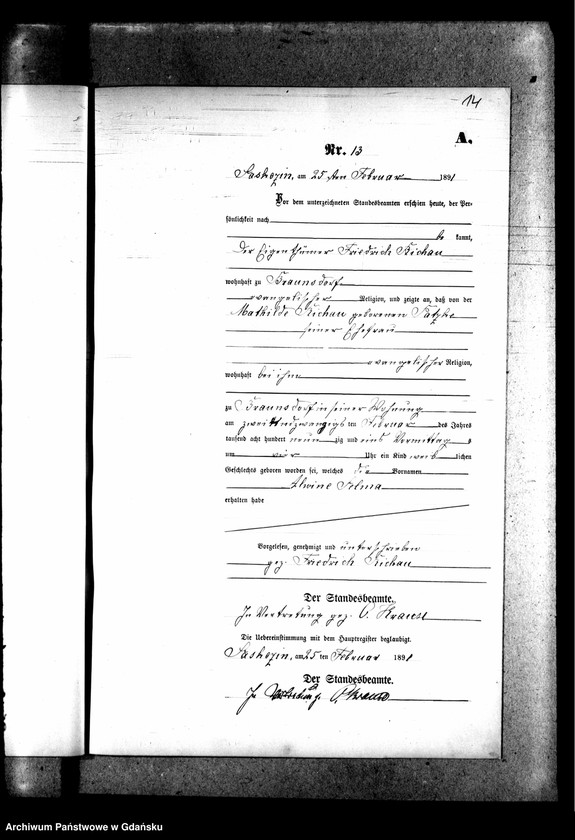 14
A.
Nr. 13
Saskozin, am 25 ten Februar 1891
Vor dem unterzeichneten Standesbeamten erschien heute, der Per-
sönlichkeit nach
be kannt,
der Eigenthümer Friedrich Richau
wohnhaft zu Braunsdorf
evangelischer Religion, und zeigte an, daß von der
Mathilde Richau geborenen
seiner Ehefrau
evangelischer Religion,
wohnhaft bei ihm
zu Braunsdorf in seiner Wohnung
am zweiundzwanzigs ten Februar des Jahres
tausend acht hundert neun zig und eins Vormittag s
um vier Uhr ein Kind weib lichen
Geschlechts geboren worden sei, welches die Vornamen
Alwine Selma
erhalten habe
Vorgelesen, genehmigt und unterschrieben
gez. Friedrich Richau
Der Standesbeamte.
In Vertretung gez. O. Krause
Die Uebereinstimmung mit dem Hauptregister beglaubigt.
Saskozin, am 25 ten Februar 1891
Der Standesbeamte.
In Vertretung O. Krause
Archiwum Państwowe w Gdańsku